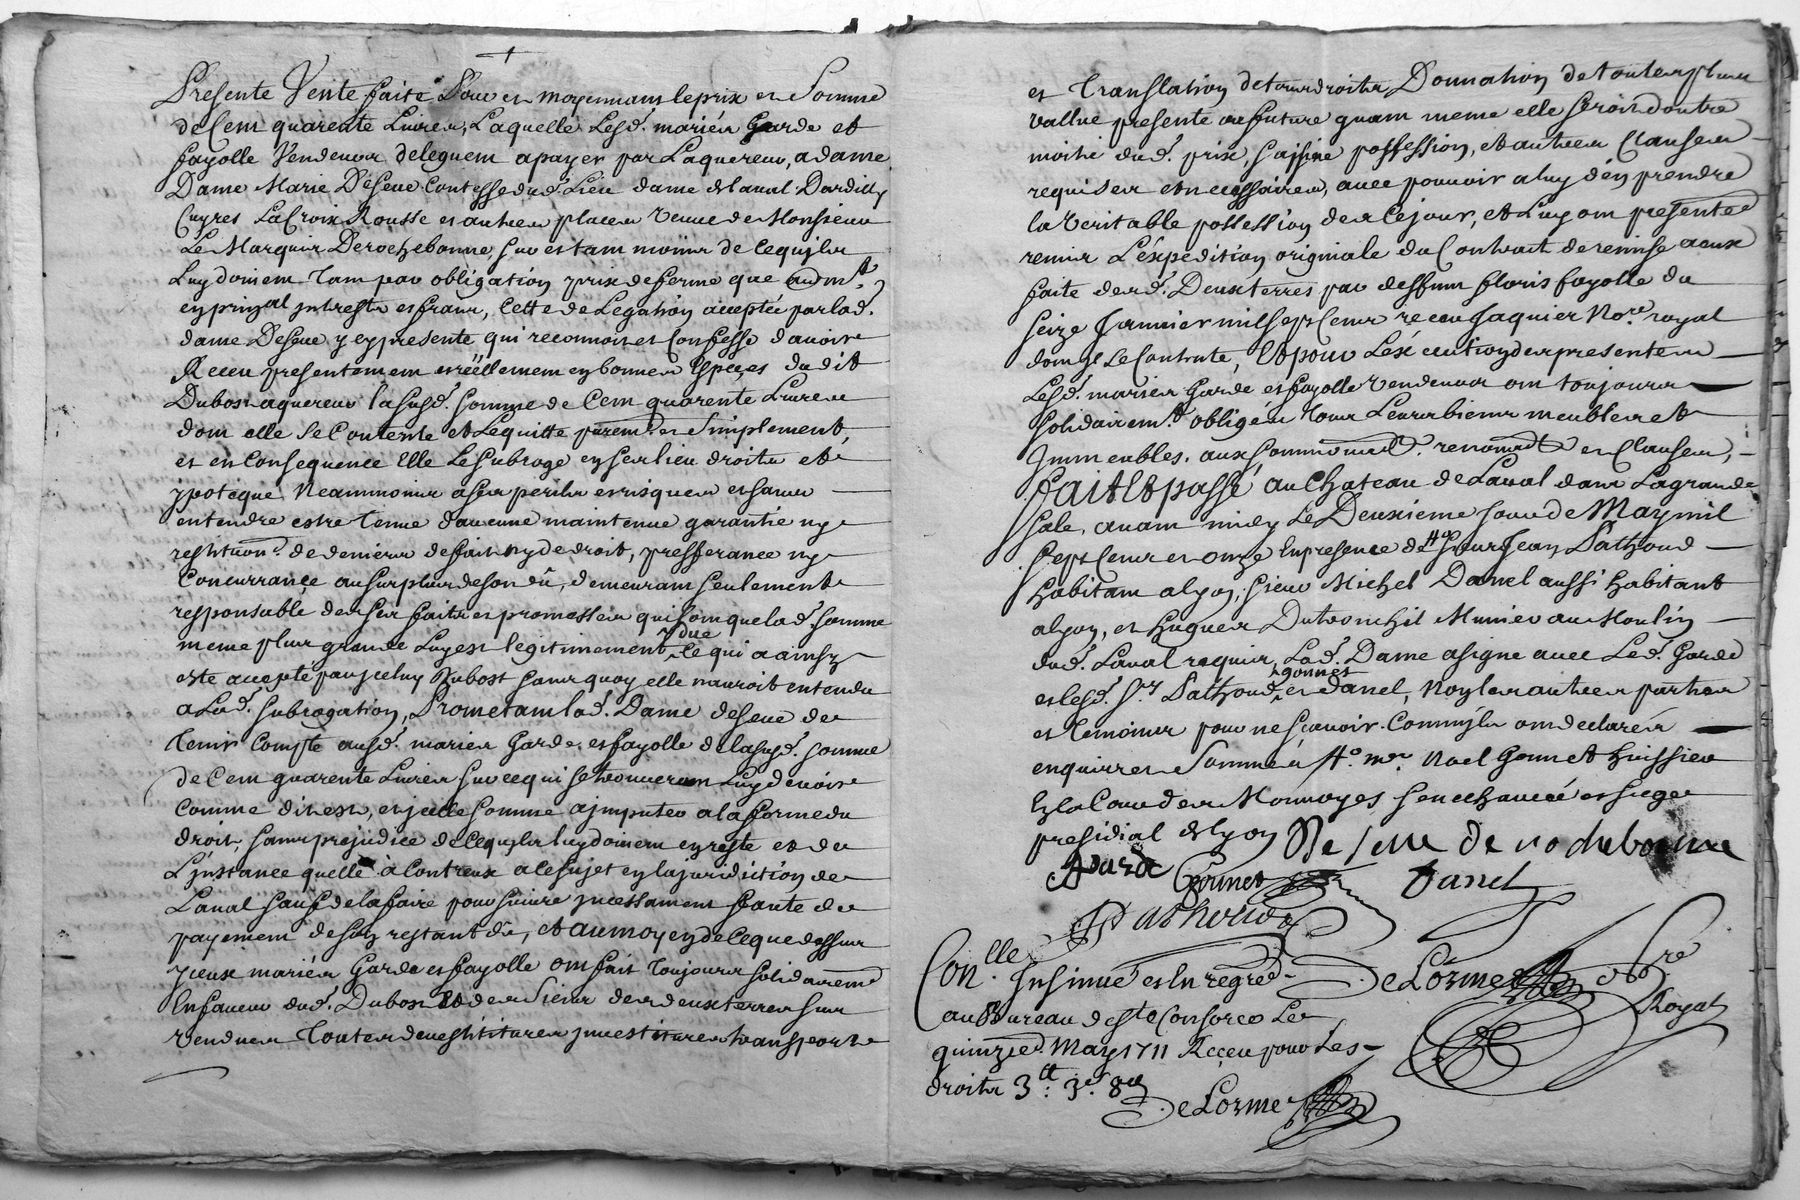 Presente Vente faite Pour et moyennant le prix et Somme
de Cent quarente Livres, Laquelle Lesd. mariés Garde et
fayolle Vendeurs deleguent a payer par Laquereur, a dame
Dame Marie De Seve Contesse dud. Lieu dame de laval Dardilly
Cuyres La Croix Rousse et autres places veuve de Monsieur
Le Marquis De rochebonne, sur et tant moins de ce quils
Luy doivent tant par obligation prix de ferme que autremt.
en prinpal intrests et frais, Cette delegation acceptée par lad.
dame De Seve y epresente qui reconnoit et Confesse d'avoir
Receu presentement et réellement en bonnes Especes du dit
Dubost aquereur lasusd. somme de Cent quarente Livres
dont elle se Contente et Lequitte puremt. et Simplement,
et en Consequence Elle Le subroge en ses lieu droits et
ypoteque Neammoins a ses perils et risques et sans
entendre estre tenue daucune maintenue garantie ny
restitution de deniers de fait ny de droit, presferance ny
Concurrance au surplus de son dû, demeurant seulement
responsable de ses faits et promesses qui sont que lad. somme
meme plus grande Luy est legitimement due ce qui a ainsy
esté accepté par iceluy Dubost sans quoy elle nauroit entendu
a Lad. subrogation, Prometant lad. Dame deseve de
tenir Compte ausd. mariés Garde et fayolle de lasusd. somme
de Cent quarente Livres sur ce qui se trouveront Luy devoir
Comme dit est, et icelle somme ajmputer a la forme du
droit, sans prejudice de ce quils luy doivent en reste et de
L'jnstance quelle à Contreux a ce sujet en la jurdiction de
Laval sauf de la faire poursuivre jncessament faute de
payement de son restant dû, et au moyen de ce que dessus
yceux mariés Garde et fayolle ont fait toujours solidairemt
En faveur dud. Dubost et des siens des deux terres sus
vendues toutes devestitures jnvestitures transports
et translation de tous droits, Donnation de toute plus
vallue presente ou future quant meme elle seroit doutre
moitié dud. prix, saisine possession, et autres Clauses
requises et necessaires, avec pouvoir a luy d'en prendre
la veritable possession des ce jour, et Luy ont presentes
remis L'expedition originale du Contrait de remise a eux
faite desd. Deux terres par deffunt floris fayolle du
seize janvier mil sept Cents receu Jaquier Nore. royal
dont jl se Contente, Et pour Lexécution des presentes
Lesd. mariés Garde et fayolle vendeurs ont toujours
solidairemt. obligés tous Leurs biens meubles et
Jmmeubles. aux renonat. et Clauses,
fait et passé au Chateau de Laval dans La grande
sale, avant midy Le Deuxieme jour de May mil
sept Cents et onze En presence de sieur Jean Pathoud
habitant a lyon, sieur Michel Danel aussi habitant
a lyon, et hugues Dutronchil Munier au Moulin
dud. Laval requis, Lad. Dame a signé avec Led. Garde
et lesd. srs Pathoud, gonnet et danel, Non les autres parties
et temoins pour ne sçavoir Comm'jls ont declarés
enquis et Sommés Noel Gonnet huissier
En la Cour des Monnoyes senechaucé et siege
presidial de lyon De seve de rochebonne
Garde Gonnet Danel
Pathoud
Con.lle
Insinué et En regré De Lorme nore
au Bureau de ste Consorce Le Royal
quinze May 1711 Receu pour Les
droits 3tt. 3s. 8d
De Lorme